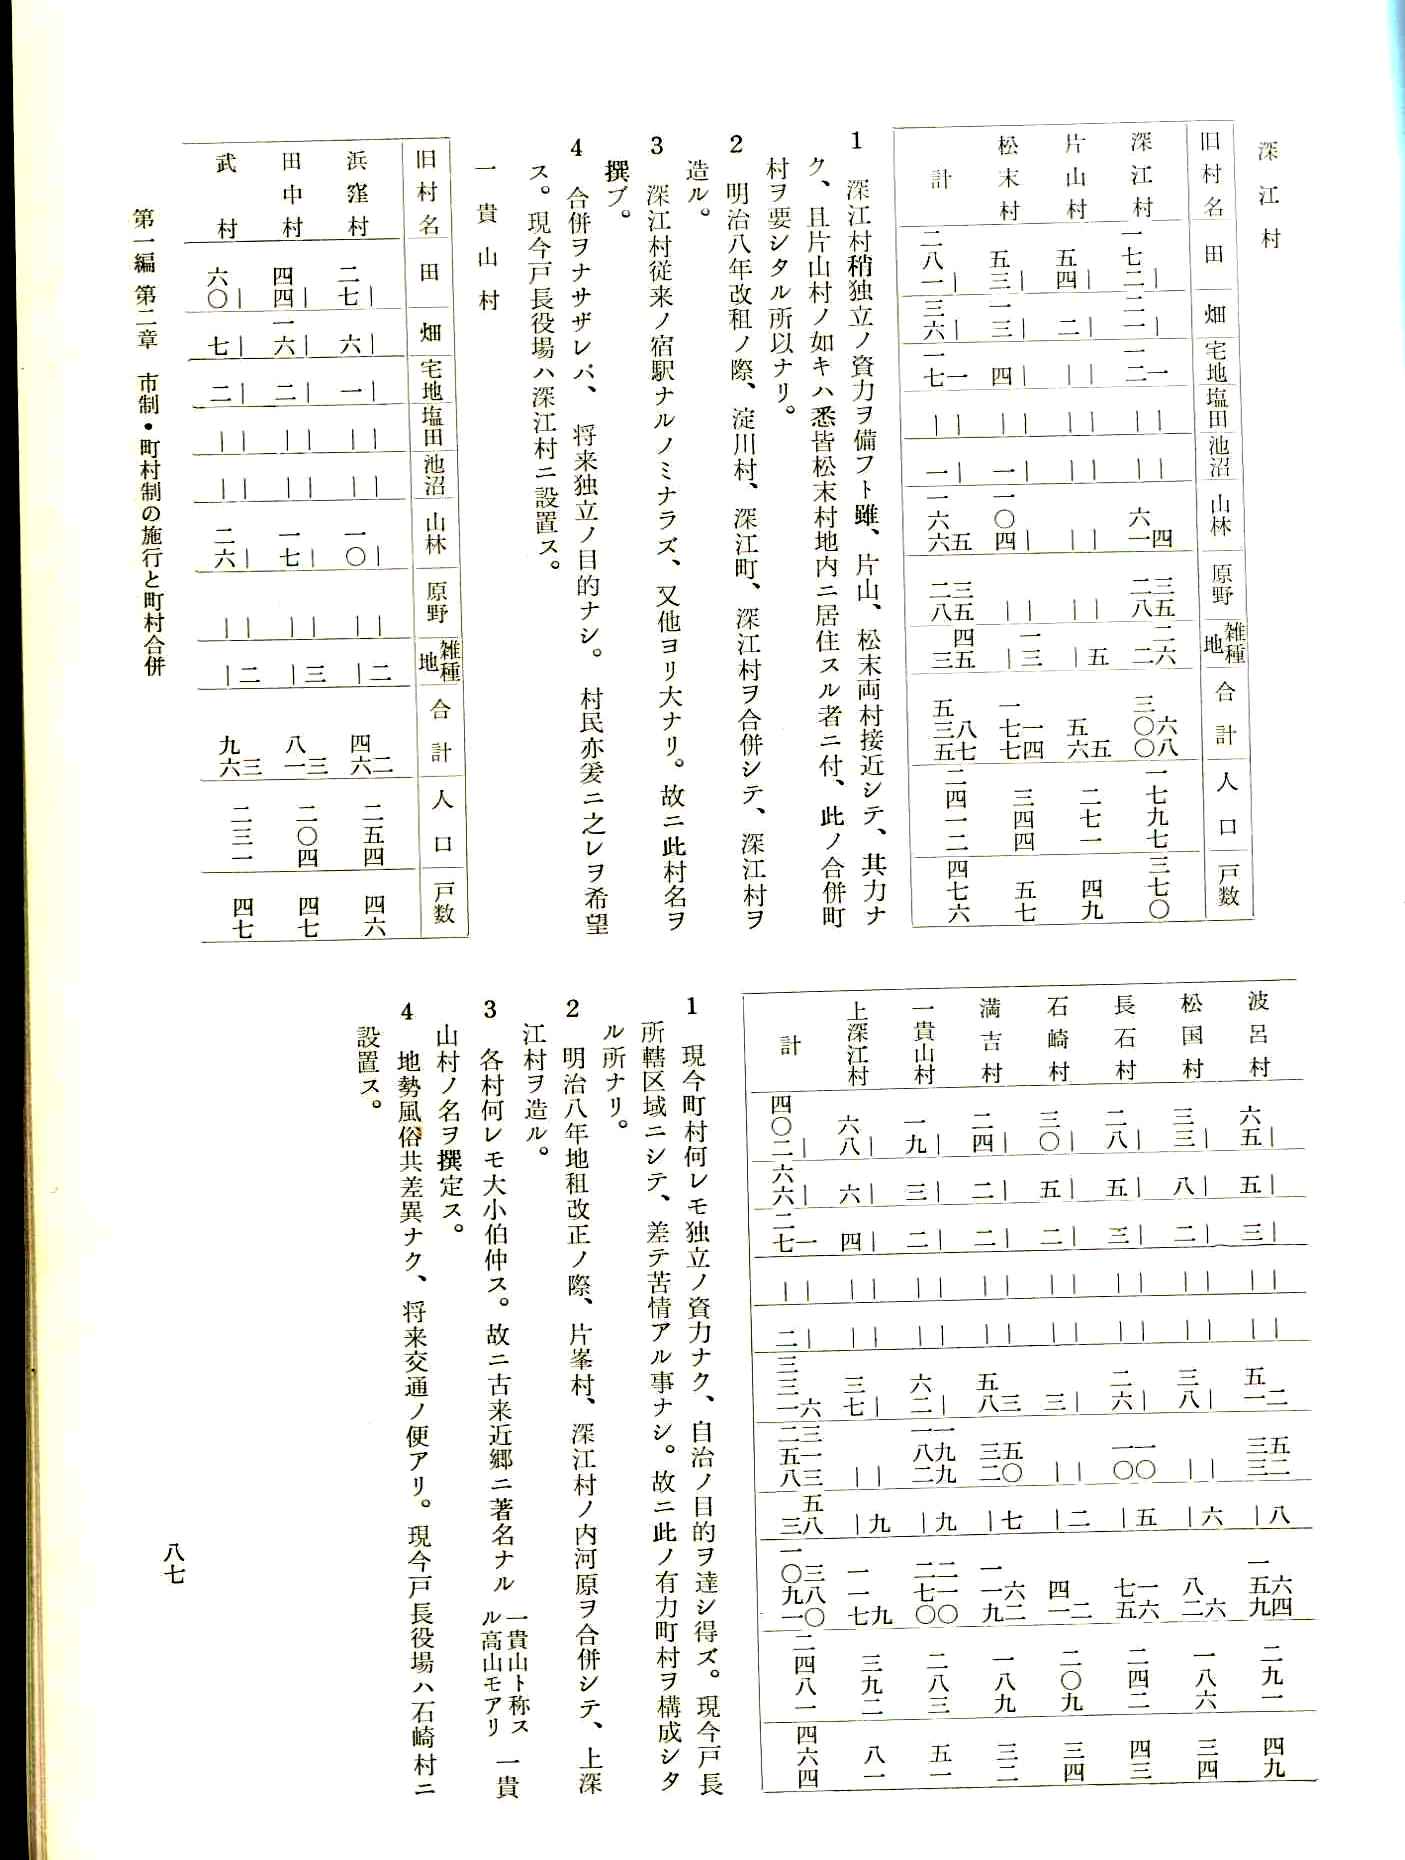 深江村
旧村名 田 畑 宅地 塩田 池沼 山林 原野 雑種地 合計 人口 戸数
深江村 一七二 ｜ 二一 ｜ 一二 一 ｜ ｜ ｜ ｜ 六一 四 二八 三五 二 二六 三〇〇 六八 一七九七 三七〇
片山村 五四 ｜ 二 ｜ ｜ ｜ ｜ ｜ ｜ ｜ ｜ ｜ ｜ ｜ ｜ 五 五六 五 二七一 四九
松末村 五三 ｜ 一三 ｜ 四 ｜ ｜ ｜ 一 ｜ 一〇四 ｜ ｜ ｜ ｜ 一三 一七七 一四 三四四 五七
計 二八一 ｜ 三六 ｜ 一七 一 ｜ ｜ 一 ｜ 一六六 五 二八 三五 三 四五 五三五 八七 二四一二 四七六
1 深江村稍独立ノ資力ヲ備フト雖、片山、松末両村接近シテ、其力ナ
ク、且片山村ノ如キハ悉皆松末村地内ニ居住スル者ニ付、此ノ合併町
村ヲ要シタル所以ナリ。
2 明治八年改租ノ際、淀川村、深江町、深江村ヲ合併シテ、深江村ヲ
造ル。
3 深江村従来ノ宿駅ナルノミナラズ、又他ヨリ大ナリ。故ニ此村名ヲ
撰ブ。
4 合併ヲナサザレバ、将来独立ノ目的ナシ。村民亦爰ニ之レヲ希望
ス。現今戸長役場ハ深江村ニ設置ス。
一貴山村
旧村名 田 畑 宅地 塩田 池沼 山林 原野 雑種地 合計 人口 戸数
浜窪村 二七 ｜ 六 ｜ 一 ｜ ｜ ｜ ｜ ｜ 一〇 ｜ ｜ ｜ ｜ 二 四六 二 二五四 四六
田中村 四四 ｜ 一六 ｜ 二 ｜ ｜ ｜ ｜ ｜ 一七 ｜ ｜ ｜ ｜ 三 八一 三 二〇四 四七
武村 六〇 ｜ 七 ｜ 二 ｜ ｜ ｜ ｜ ｜ 二六 ｜ ｜ ｜ ｜ 二 九六 三 二三一 四七
波呂村 六五 ｜ 五 ｜ 三 ｜ ｜ ｜ ｜ ｜ 五一 二 三三 五二 ｜ 八 一五九 六四 二九一 四九
松国村 三三 ｜ 八 ｜ 二 ｜ ｜ ｜ ｜ ｜ 三八 ｜ ｜ ｜ ｜ 六 八二 六 一八六 三四
長石村 二八 ｜ 五 ｜ 三 ｜ ｜ ｜ ｜ ｜ 二六 ｜ 一〇 一〇 ｜ 五 七五 一六 二四二 四三
石崎村 三〇 ｜ 五 ｜ 二 ｜ ｜ ｜ ｜ ｜ 三 ｜ ｜ ｜ ｜ 二 四一 二 二〇九 三四
満吉村 二四 ｜ 二 ｜ 二 ｜ ｜ ｜ ｜ ｜ 五八 三 三二 五〇 ｜ 七 一一九 六二 一八九 三二
一貴山村 一九 ｜ 三 ｜ 二 ｜ ｜ ｜ ｜ ｜ 六二 ｜ 一八二 一九九 ｜ 九 二七〇 二一〇 二八三 五一
上深江村 六八 ｜ 六 ｜ 四 ｜ ｜ ｜ ｜ ｜ 三七 ｜ ｜ ｜ ｜ 九 一一七 九 三九二 八一
計 四〇二 ｜ 六六 ｜ 二七 一 ｜ ｜ 二 ｜ 三三一 六 二五八 三一三 三 五八 一〇九一 三八〇 二四八一 四六四
1 現今町村何レモ独立ノ資力ナク、自治ノ目的ヲ達シ得ズ。現今戸長
所轄区域ニシテ、差テ苦情アル事ナシ。故ニ此ノ有力町村ヲ構成シタ
ル所ナリ。
2 明治八年地租改正ノ際、片峯村、深江村ノ内河原ヲ合併シテ、上深
江村ヲ造ル。
3 各村何レモ大小伯仲ス。故ニ古来近郷ニ著名ナル 一貴山ト称スル高山モアリ 一貴
山村ノ名ヲ撰定ス。
4 地勢風俗共差異ナク、将来交通ノ便アリ。現今戸長役場ハ石崎村ニ
設置ス。
第一編 第二章 市制・町村制の施行と町村合併
八七